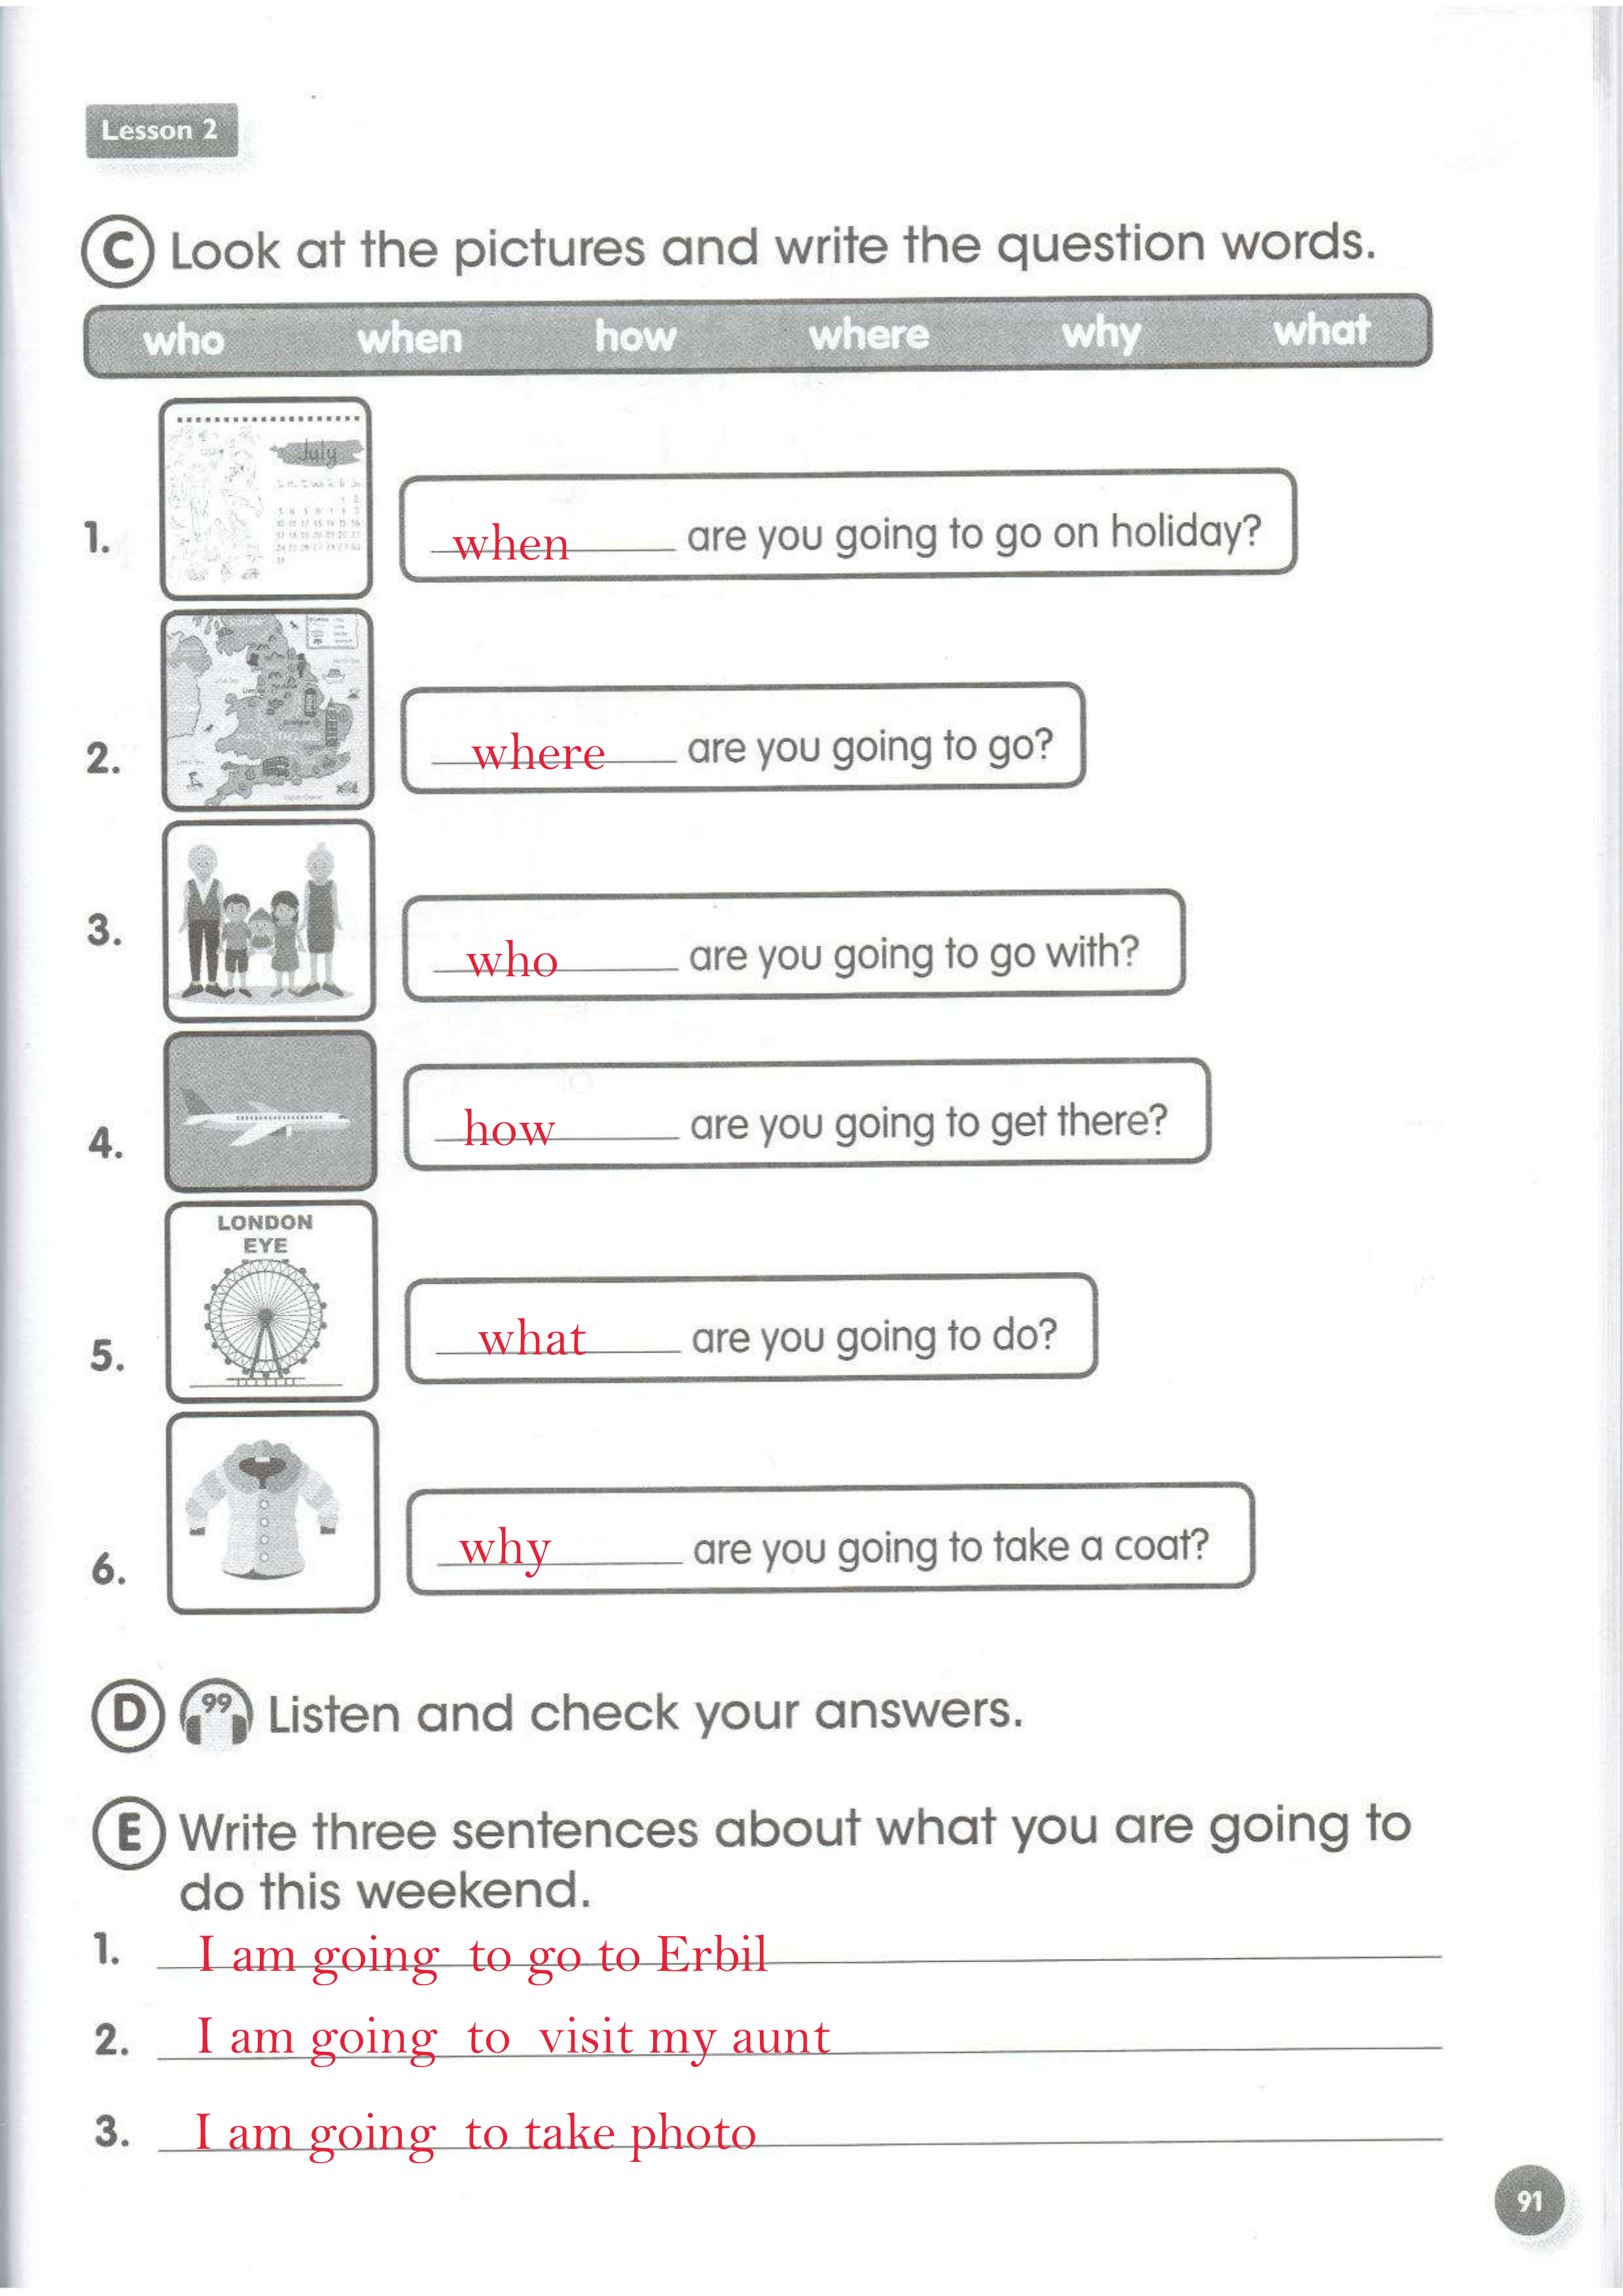 Lesson 2
C Look at the pictures and write the question words.
who when how where why what
July
1. when are you going to go on holiday?
2. where are you going to go?
3. who are you going to go with?
4. how are you going to get there?
LONDON
EYE
5. what are you going to do?
6. why are you going to take a coat?
D 99 Listen and check your answers.
E Write three sentences about what you are going to
do this weekend.
1. I am going to go to Erbil
2. I am going to visit my aunt
3. I am going to take photo
91